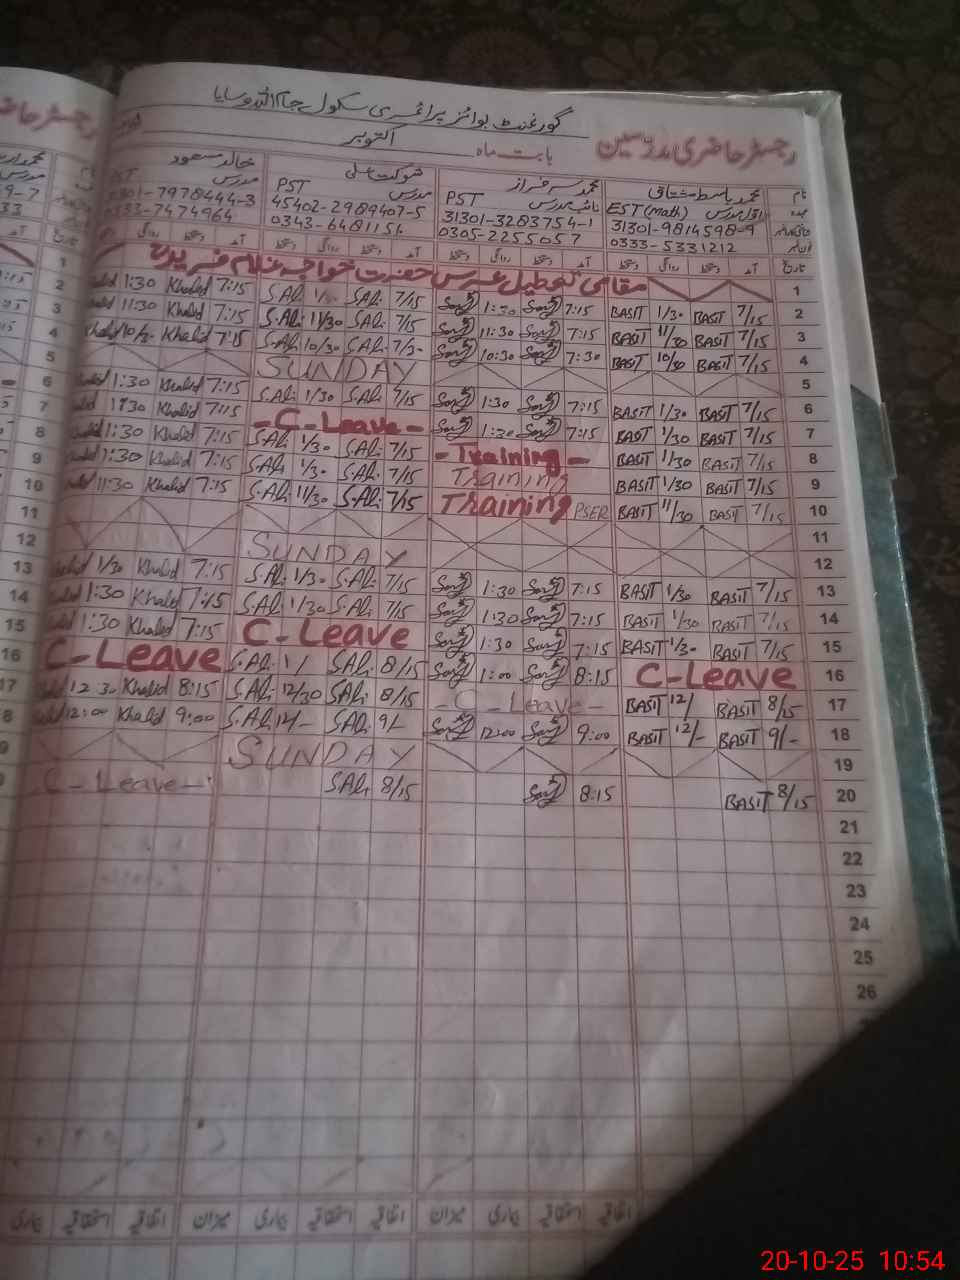 گورنمنٹ بوائز پرائمری سکول
رجسٹر حاضری مدرسین
بابت ماہ اکتوبر
نام محمد باسط مشتاق محمد سرفراز شوکت علی خالد مسعود
EST (math) اول مدرس PST نائب مدرس PST مدرس PST مدرس
31301-9814598-9 31301-3283754-1 45402-2989407-5 0301-7978444-3
0333-5331212 0305-2255057 0343-6481154 0333-7474964
تاریخ آمد دستخط روانگی دستخط آمد دستخط روانگی دستخط آمد دستخط روانگی دستخط آمد
1 مقامی تعطیل عرس حضرت خواجہ غلام فرید
2 1:30 Khalid 7:15 S.Ali 1/30 S.Ali 7/15 1:30 7:15 BASIT 1/30 BASIT 7/15 2
3 11:30 Khalid 7:15 S.Ali 11/30 S.Ali 7/15 11:30 7:15 BASIT 11/30 BASIT 7/15 3
4 Khalid 10/30 Khalid 7:15 S.Ali 10/30 S.Ali 7/30 10:30 7:30 BASIT 10/30 BASIT 7/15 4
5 SUNDAY 5
6 1:30 Khalid 7:15 S.Ali 1/30 S.Ali 7/15 1:30 7:15 BASIT 1/30 BASIT 7/15 6
7 1:30 Khalid 7:15 - C-Leave - 1:30 7:15 BASIT 1/30 BASIT 7/15 7
8 1:30 Khalid 7:15 S.Ali 1/30 S.Ali 7/15 - Training - BASIT 1/30 BASIT 7/15 8
9 1:30 Khalid 7:15 S.Ali 1/30 S.Ali 7/15 Training BASIT 1/30 BASIT 7/15 9
10 11:30 Khalid 7:15 S.Ali 11/30 S.Ali 7/15 Training PSER BASIT 11/30 BASIT 7/15 10
11 11
12 SUNDAY 12
13 1/30 Khalid 7:15 S.Ali 1/30 S.Ali 7/15 1:30 7:15 BASIT 1/30 BASIT 7/15 13
14 1:30 Khalid 7:15 S.Ali 1/30 S.Ali 7/15 1:30 7:15 BASIT 1/30 BASIT 7/15 14
15 1:30 Khalid 7:15 C-Leave 1:30 7:15 BASIT 1/30 BASIT 7/15 15
16 C-Leave S.Ali 1/ S.Ali 8/15 1:00 8:15 C-Leave 16
17 12:30 Khalid 8:15 S.Ali 12/30 S.Ali 8/15 - C-Leave - BASIT 12/ BASIT 8/15 17
8 12:00 Khalid 9:00 S.Ali 12/- S.Ali 9/- 12:00 9:00 BASIT 12/- BASIT 9/- 18
SUNDAY 19
C-Leave - S.Ali 8/15 8:15 BASIT 8/15 20
21
22
23
24
25
26
اتفاقیہ استحقاقیہ بیماری میزان اتفاقیہ استحقاقیہ بیماری میزان اتفاقیہ استحقاقیہ بیماری
20-10-25 10:54